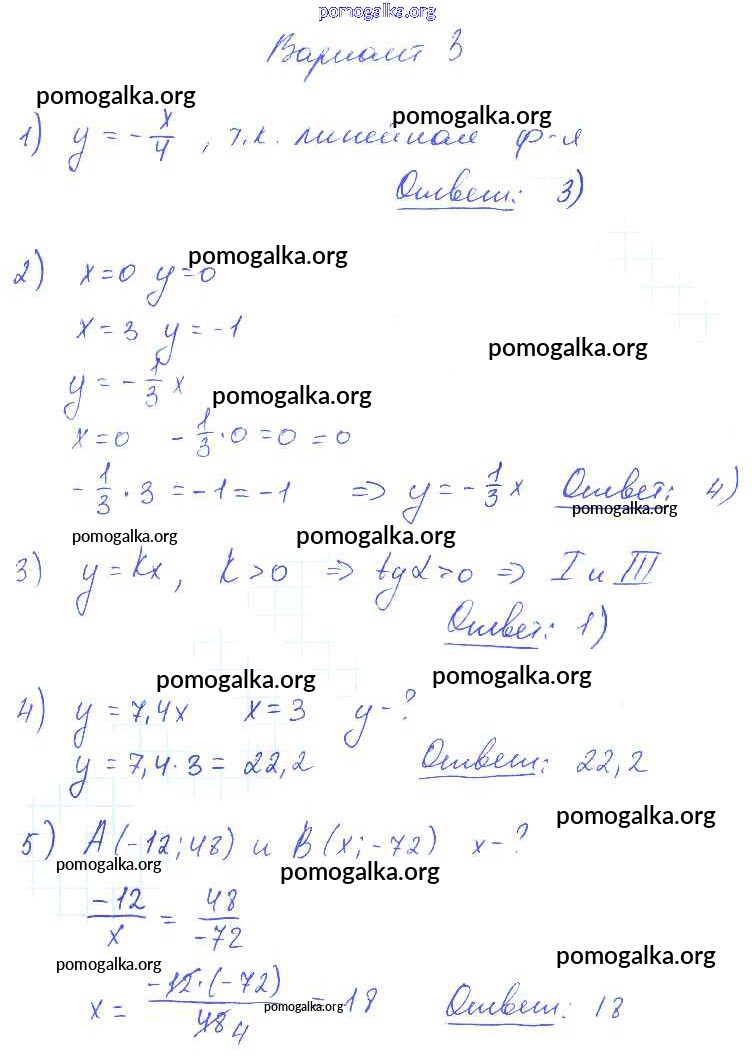 pomogalka.org
Вариант 3
pomogalka.org
pomogalka.org
1) y = -x/4, т.к. линейная ф-я
Ответ: 3)
pomogalka.org
2) x=0 y=0
x=3 y=-1
pomogalka.org
y = -1/3 x
pomogalka.org
x=0 -1/3·0=0=0
-1/3·3=-1=-1 => y=-1/3 x Ответ: 4)
pomogalka.org
pomogalka.org
pomogalka.org
3) y=kx, k>0 => tgα>0 => I и III
Ответ: 1)
pomogalka.org
pomogalka.org
4) y=7,4x x=3 y-?
y=7,4·3=22,2 Ответ: 22,2
pomogalka.org
5) A(-12;48) и B(x;-72) x-?
pomogalka.org
pomogalka.org
-12/x = 48/-72
pomogalka.org
pomogalka.org
x = -12·(-72)/48 4 = 18 Ответ: 18
pomogalka.org